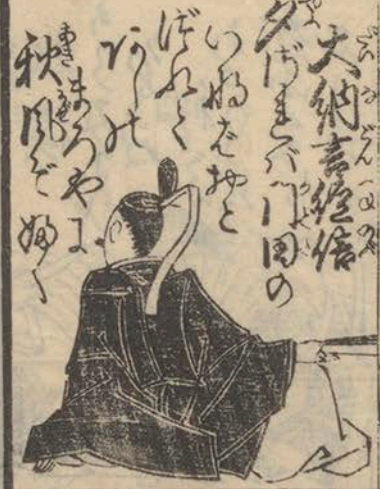 大納言經信
夕ざれバ門田の
いなばおと
づれて
あしの
まろやに
秋風ぞふく